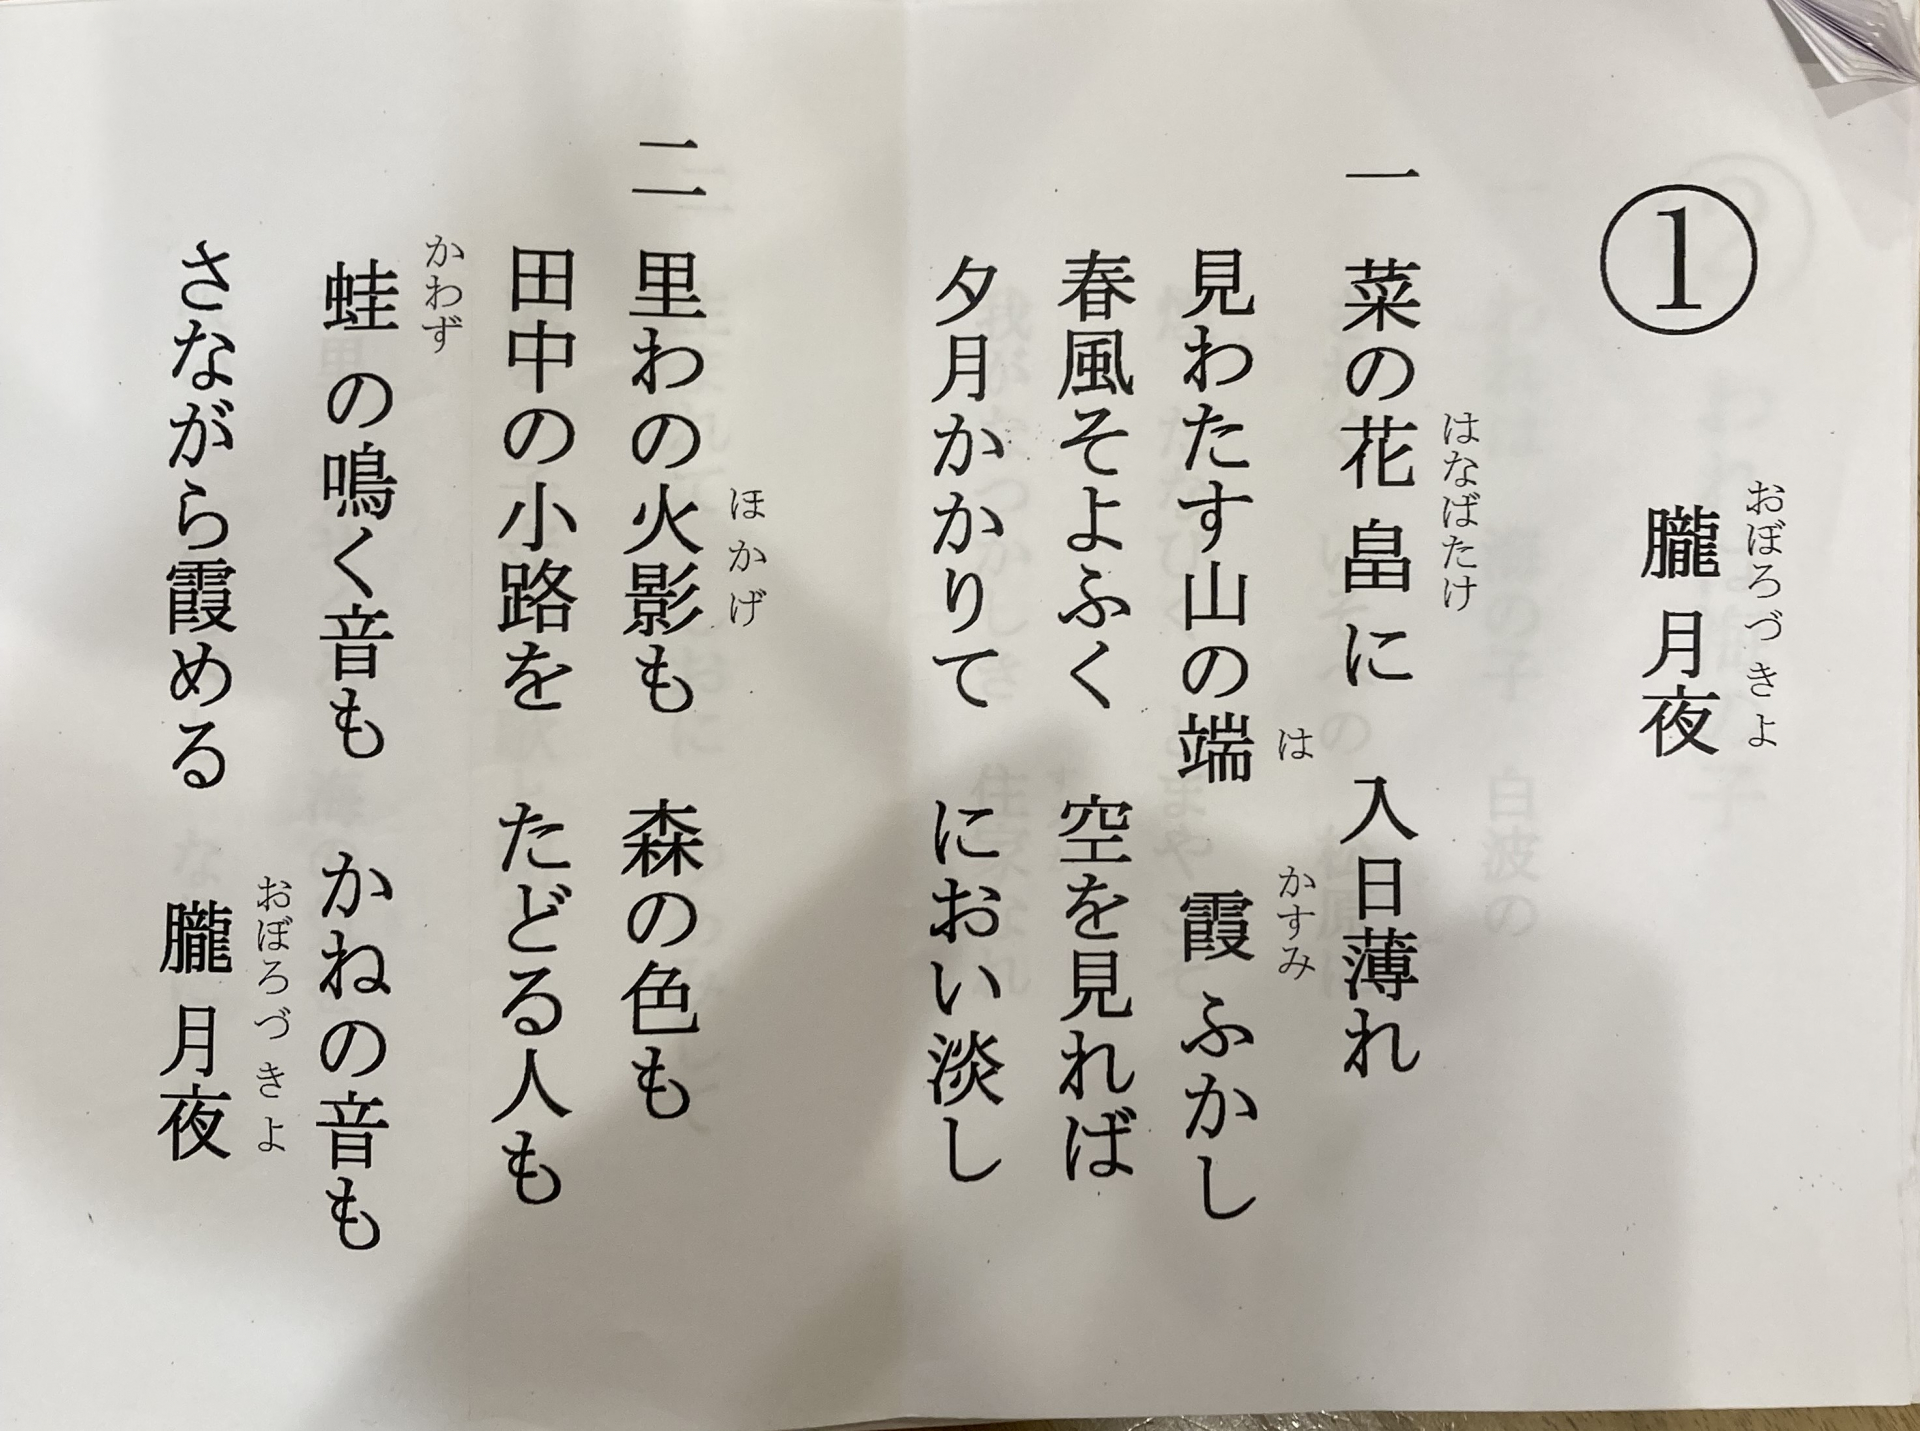 ①
朧月夜
おぼろづきよ
一 菜の花畠に 入日薄れ
はなばたけ
見わたす山の端 霞ふかし
は かすみ
春風そよふく 空を見れば
夕月かかりて におい淡し
二 里わの火影も 森の色も
ほかげ
田中の小路を たどる人も
蛙の鳴く音も かねの音も
かわず
さながら霞める 朧月夜
おぼろづきよ